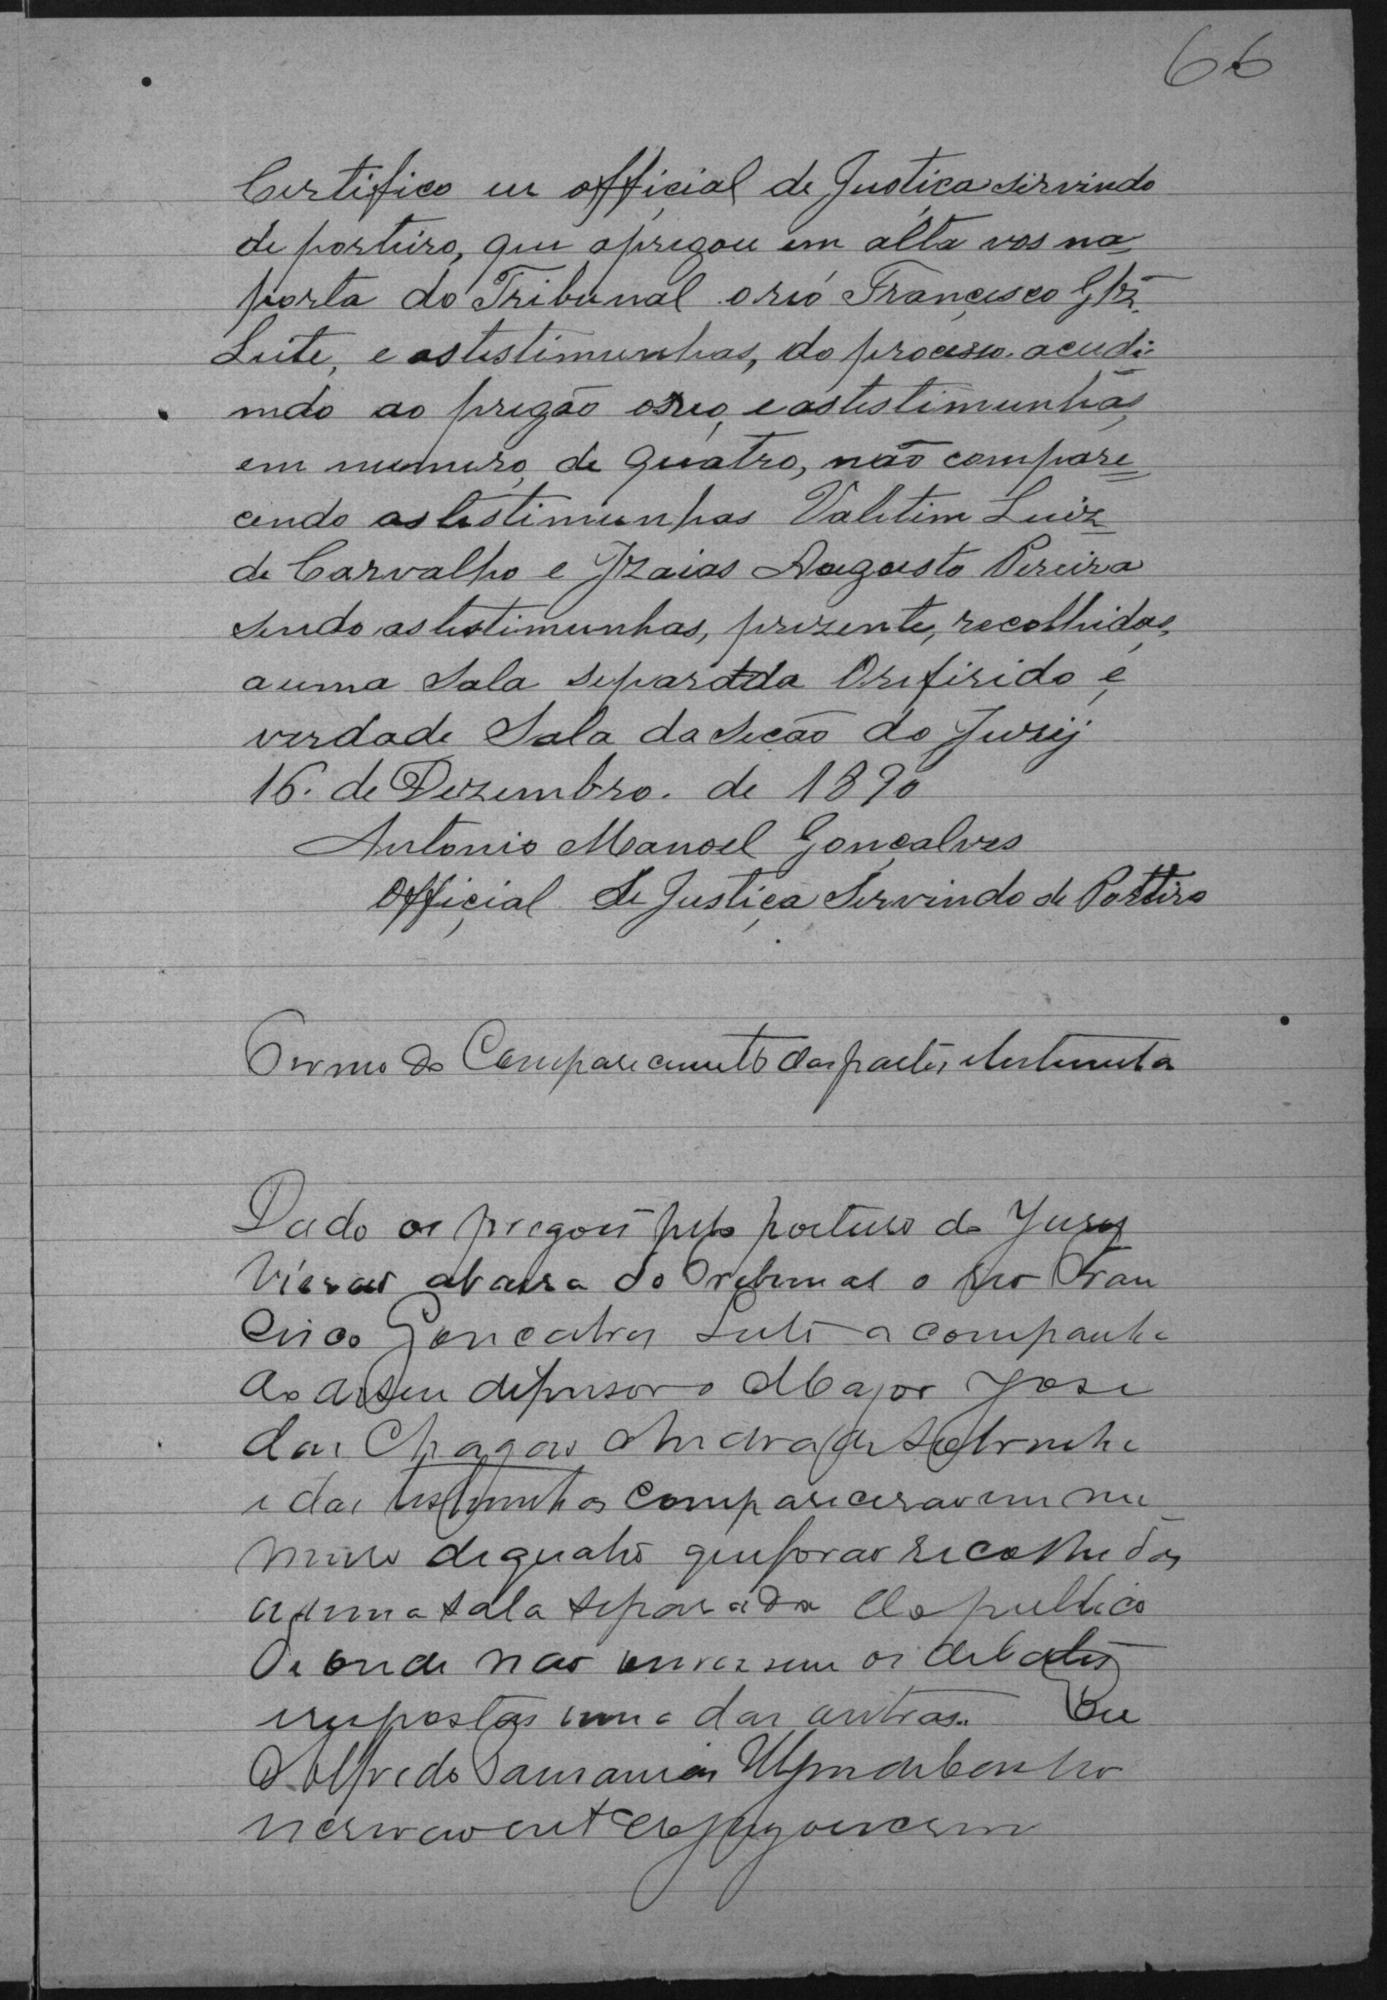 66
Certifico eu official de Justiça servindo
de porteiro, que apregou em alta vos na
porta do Tribunal o reó Francisco Glz
Leite, e as testimunhas, do processo. acudi-
ndo ao pregão o reo, e as testimunhas,
em numero, de quatro, não compare=
cendo as testimunhas Valetim Luiz
de Carvalho e Izaias Augusto Pereira
sendo as testimunhas, prezente, recolhidas,
a uma sala separadda O refirido é
verdade Sala da secão do Jurij
16. de Dezembro. de 1890
Antonio Manoel Gonçalves
Official de Justiça Servindo de Porteiro
Termo de Comparecimento das partes e testemunhas
Dado os pregoes pelo porteiro do Jury
vierao a barra do Tribunal o reo Fran
cisco Goncalves Leite acompanha
do de seu defensor o Major Jose
das Chagas Andrade Sobrinho
e das testemunhas compareceram em nu
mero de quatro que forao recolhidas
a uma sala separada do publico
de onde nao ouvissem os debates
respostas uma das outras. Eu
Alfredo